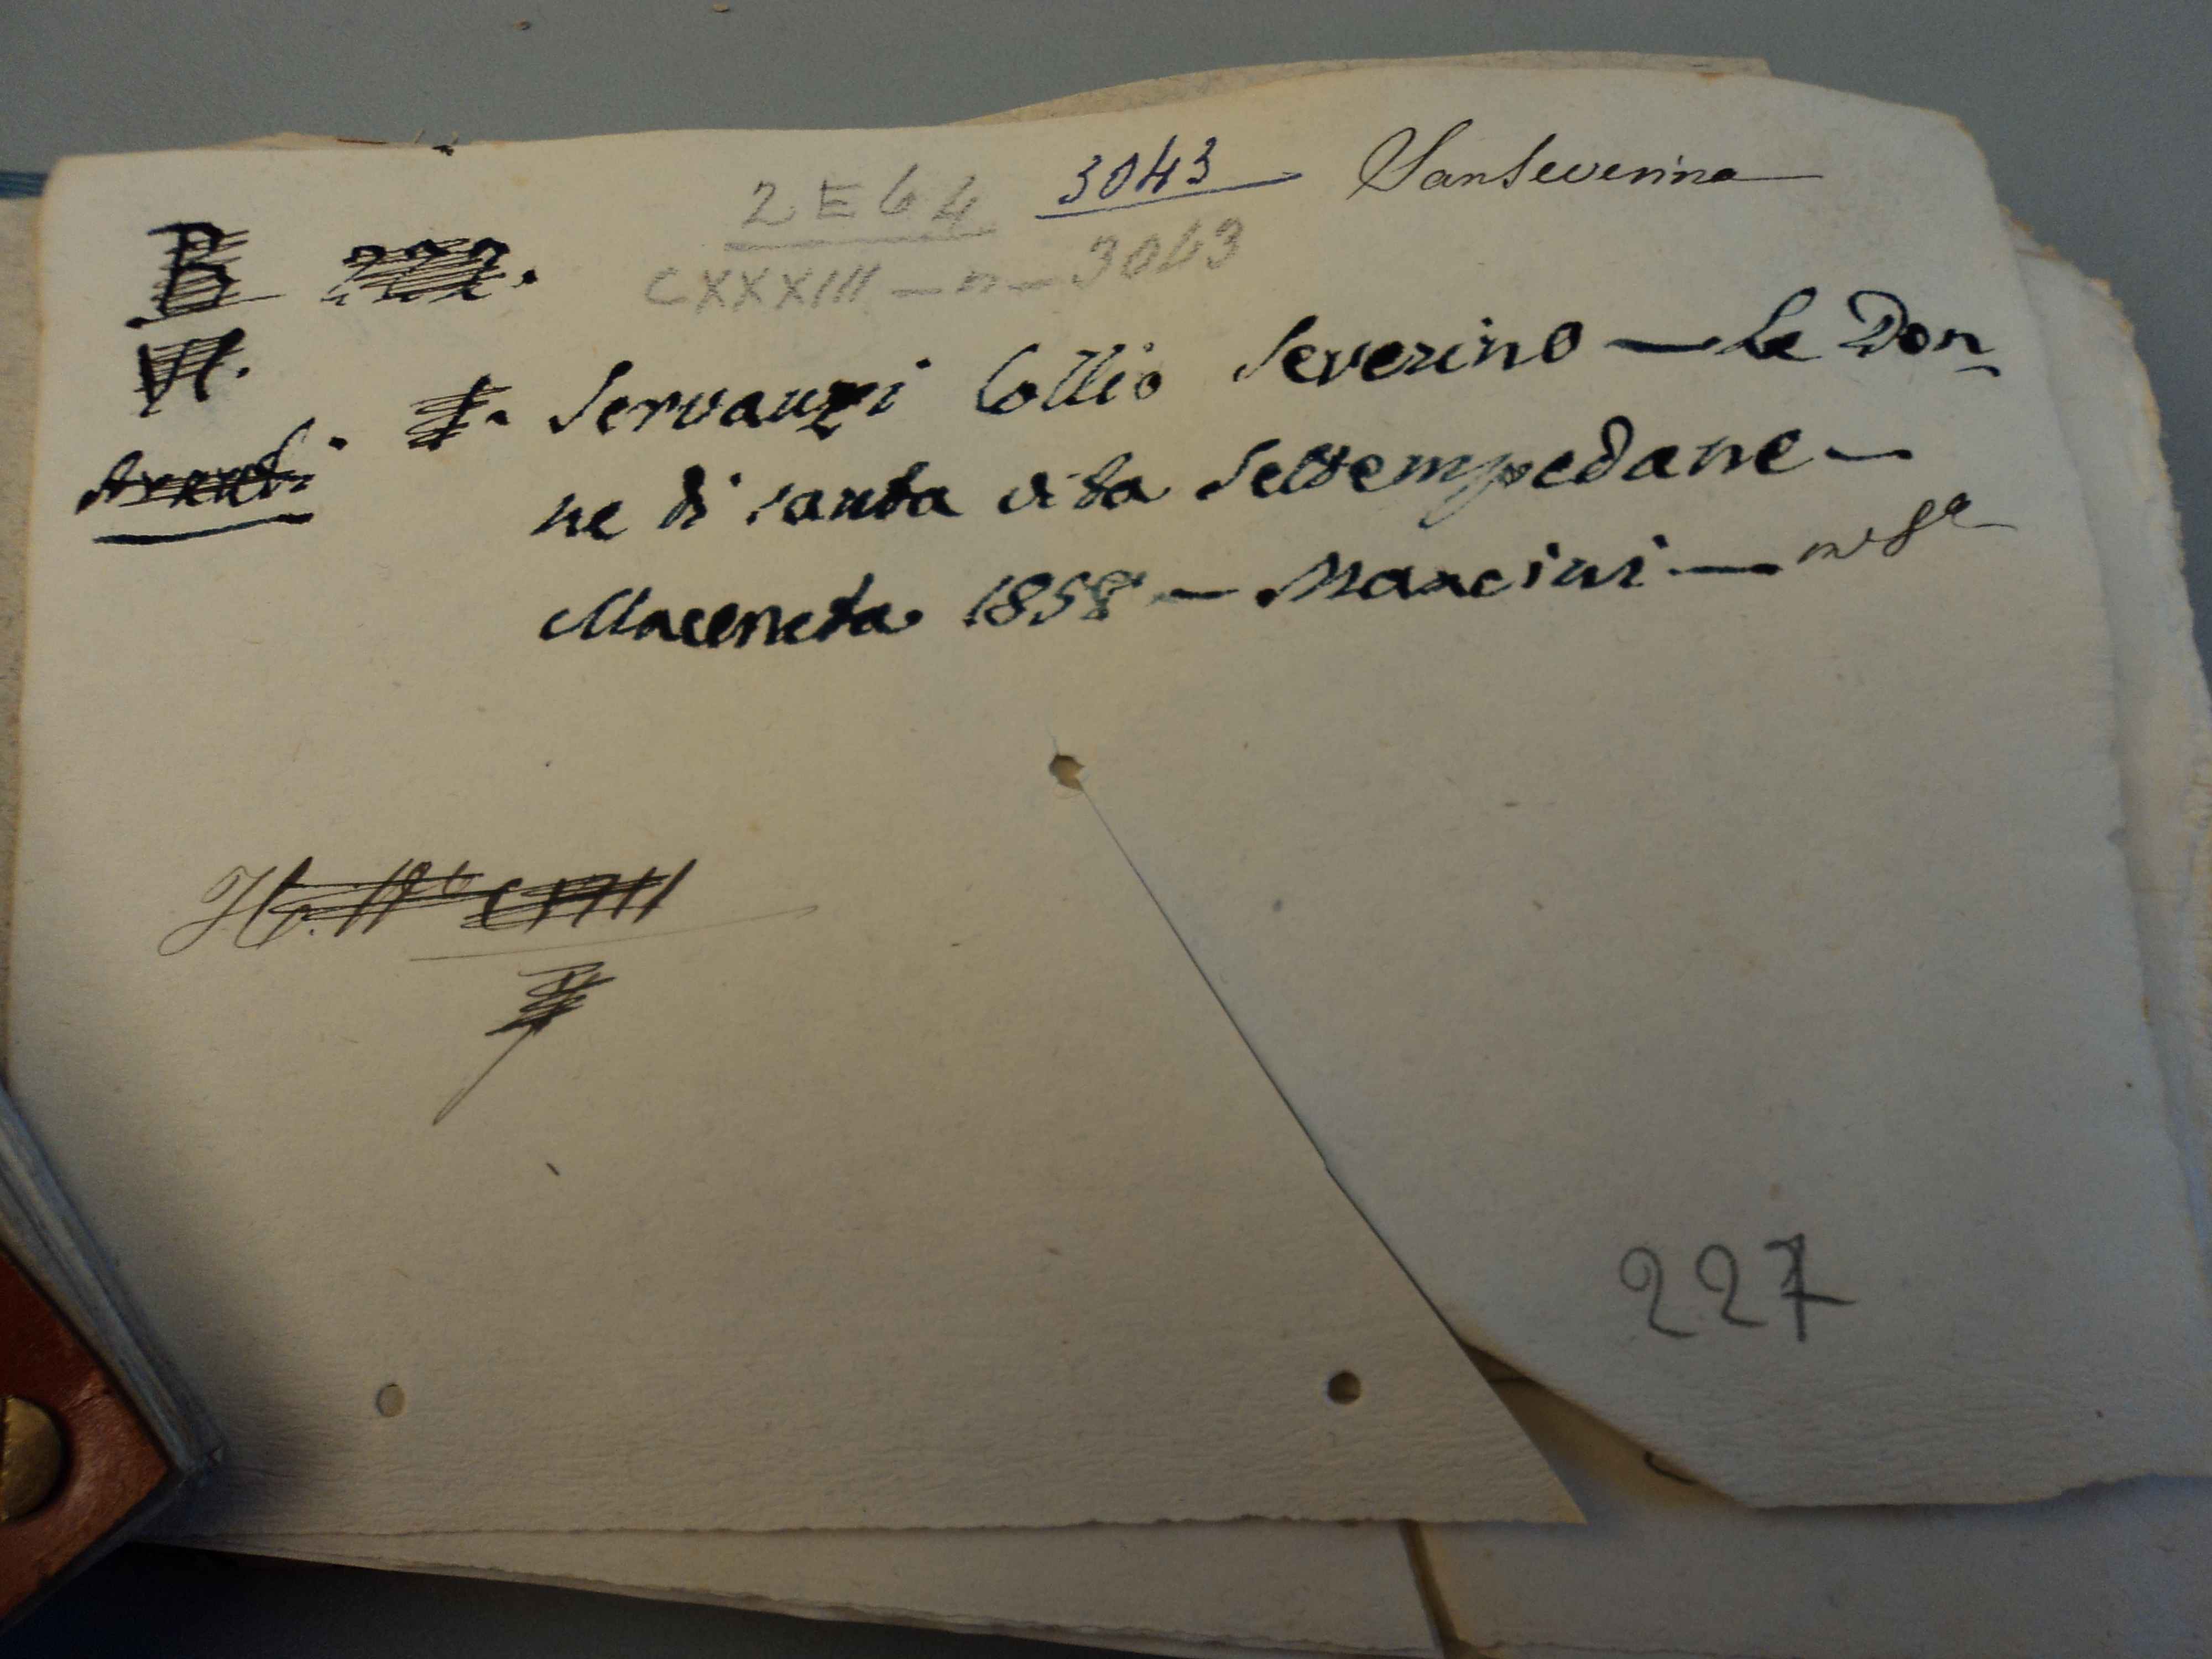 2 E 64 3043 SanSeverino
B 222.
CXXXIII - n - 3043
VI.
Servanzi Collio Severino — Le Don-
ne di santa vita Settempedane —
Macerata 1858 — Mancini —
227